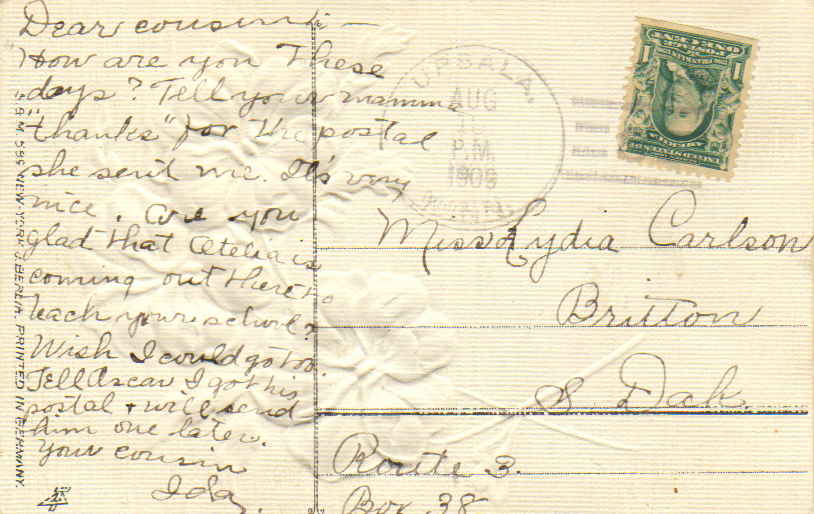 Dear cousin:—
How are you these
days? Tell your mamma
"thanks" for the postal
she sent me. It's very
nice. Are you
glad that Otelia is
coming out there to
teach your school?
Wish I could go too.
Tell Oscar I got his
postal + will send
him one later.
Your cousin
Ida.
UPSALA,
AUG
P.M.
MINN.
Miss Lydia Carlson
Britton
S Dak.
Route 3.
Box 38
NEW-YORK & BERLIN. PRINTED IN GERMANY.